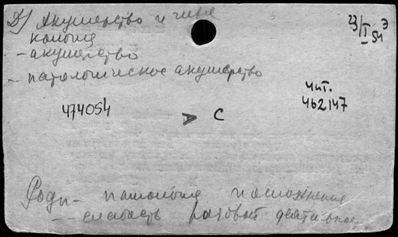 Д) Акушерство и гине
кология
- акушерство
- патологическое акушерство
23/I 54 Э
474054
С
Чит.
462147
Роды - патология и осложнения
- слабость родовой деятельнос